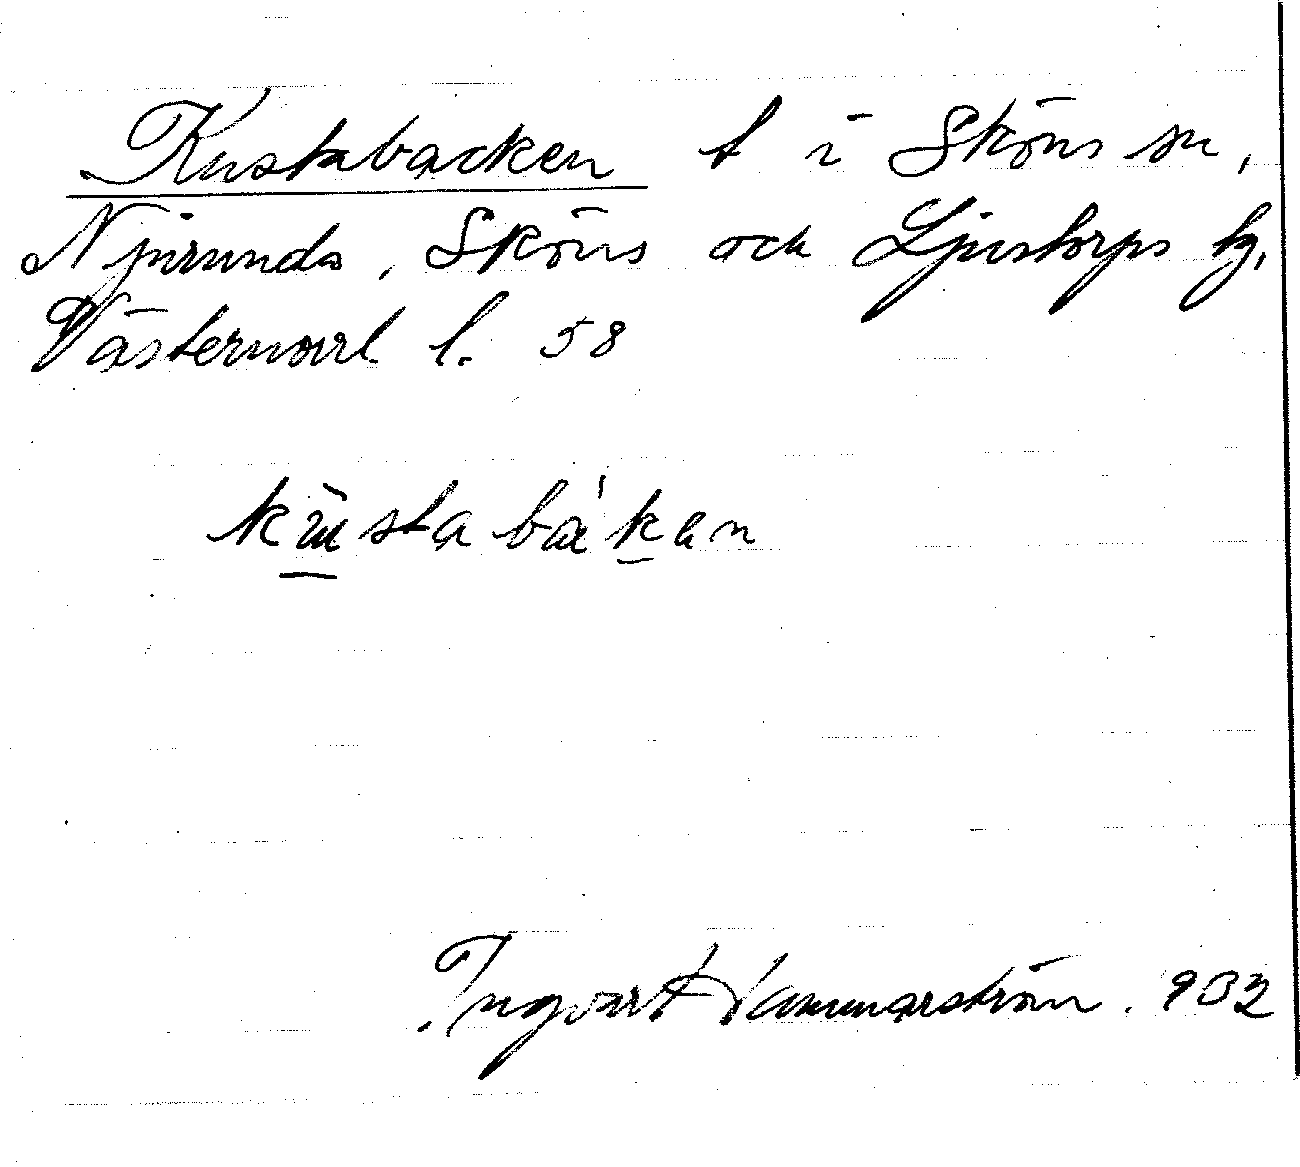 Kustabacken t i Sköns sn,
Njurunda, Sköns och Ljustorps tg,
Västernorrl l. 58
kusta bàkan
Ingvart Hammarström. 932